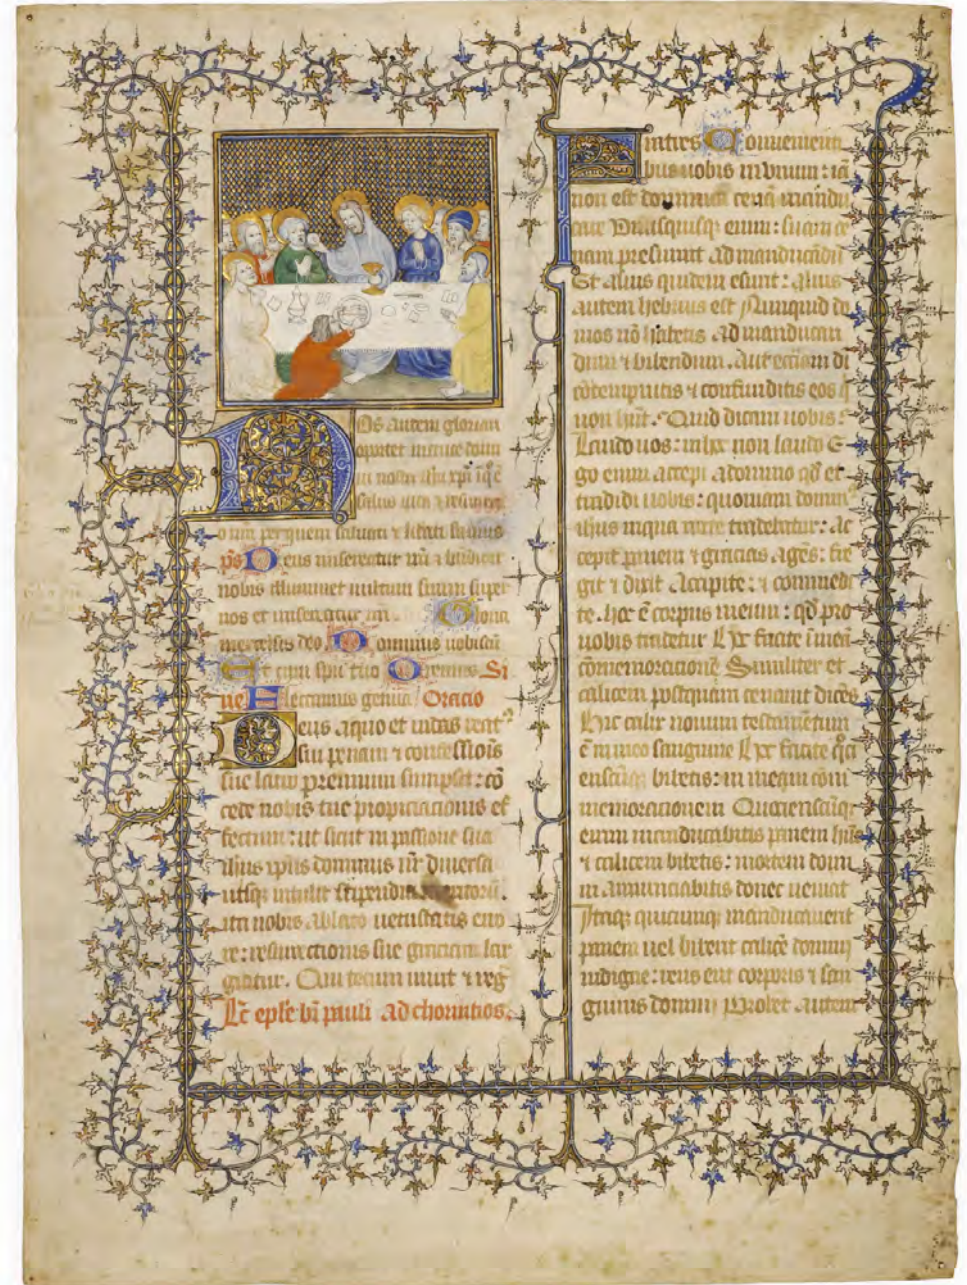 Os autem gloriari
oportet in cruce domi
ni nostri ihu xpi i q̄ ē
salus uita ⁊ resurrec
o nra per quem saluati ⁊ liberati sumus
ps Deus misereatur nri ⁊ benedicat
nobis illuminet uultum suum super
nos et misereatur nri. Gloria
in excelsis deo Dominus uobiscū
Et cum spū tuo Oremus Si
ue Flectamus genua Oracio
Deus aquo et iudas reatꝰ
sui penam ⁊ confessiōis
sue latro premium sumpsit: cō
cede nobis tue propiciacionis ef
fectum: ut sicut in passione sua
ihus xpus dominus nr̄ diuersa
utrisq; intulit stipendia meritorū.
ita nobis ablato uetustatis erro
re: resurrectionis sue gratiam lar
giatur. Qui tecum uiuit ⁊ reg̃
Lc̄ eple bi pauli ad chorintios.
Fratres Conuenienti
bus uobis in unum: iā
non est dominicā cenā mandu
care Unusquisq; enim: suam ce
nam presumit ad manducādū
Et alius quidem esurit: alius
autem hebrius est Nunquid do
mos nō habetis ad manducan
dum ⁊ bibendum. Aut ecc̄iam di
cōtempnitis ⁊ confunditis eos q̄
non hn̄t. Quid dicam uobis:
Laudo uos: in hoc non laudo E
go enim accepi a domino qd̄ et
tradidi uobis: quoniam domin̄
ihus in qua nocte tradebatur: Ac
cepit panem ⁊ gracias agēs: fre
git ⁊ dixit Accipite: ⁊ commedi
te. hoc ē corpus meum: qd̄ pro
uobis tradetur Hoc facite i meā
cōmemoracionē Similiter et
calicem postquam cenauit dicēs
Hic calix nouum testamētum
ē in meo sanguine Hoc facite q̄ci
enscūq; bibetis: in meam com
memoracionem Quocienscūq;
enim manducabitis panem hūc
⁊ calicem bibetis: mortem domi
ni annunciabitis donec ueniat
Itaq; quicunq; manducauerit
panem uel biberit calicē domini
indigne: reus erit corporis ⁊ san
guinis domini Probet autem